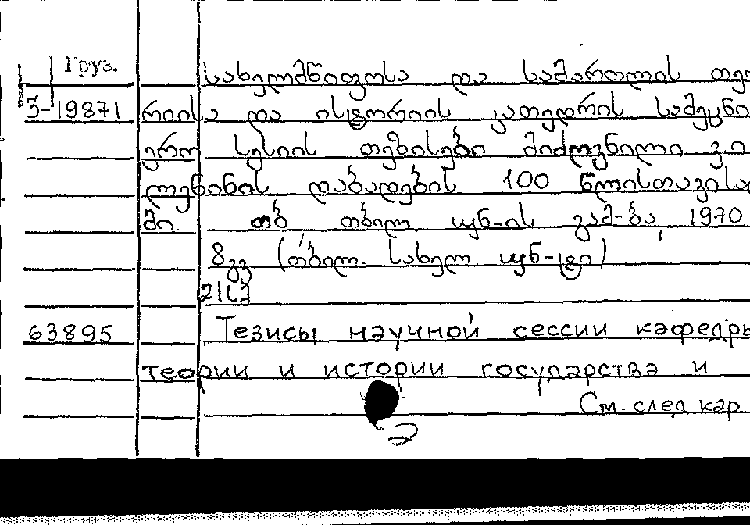 Груз.
სახელმწიფოსა და სამართლის თეო
3-19871 რიისა და ისტორიის კათედრის სამეცნი
ერო სესიის თეზისები მიძღვნილი ვ.ი.
ლენინის დაბადების 100 წლისთავისა
დმი. თბ თბილ. უნ-ის გამ-ბა, 1970
8გვ (თბილ. სახელ. უნ-ტი)
63895 Тезисы научной сессии кафедры
теории и истории государства и
См. след кар
2